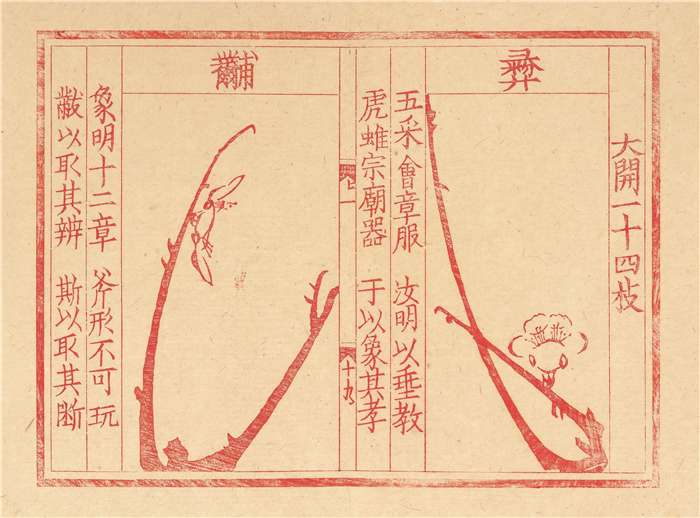 大開一十四枝
彝
五采會章服　汝明以垂教
虎蜼宗廟器　于以象其孝
上
十九
黼
象明十二章　斧形不可玩
黻以取其辨　斯以取其断